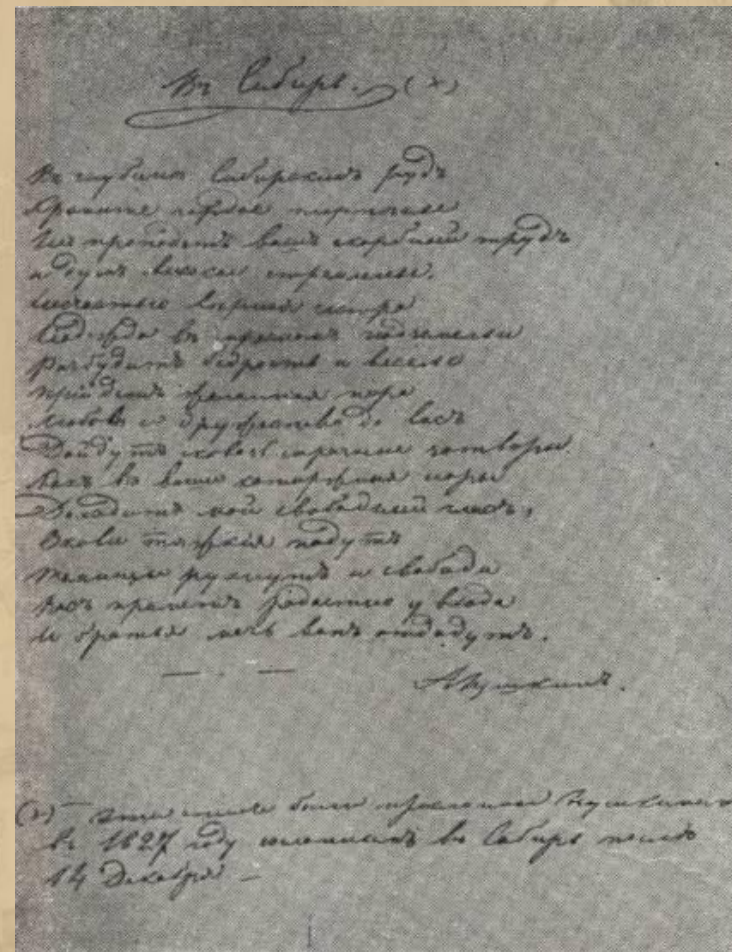 Въ Сибирь. (х)
Въ глубинѣ Сибирскихъ рудъ
Храните гордое терпѣнье
Не пропадетъ вашъ скорбный трудъ
и думъ высокое стремленье.
Несчастью вѣрная сестра
Надежда въ мрачномъ подземельи
Разбудитъ бодрость и веселье
прійдетъ желанная пора
Любовь и дружество до васъ
Дойдутъ сквозь мрачные затворы
Какъ въ ваши каторжныя норы
Доходитъ мой свободный гласъ,
Оковы тяжкія падутъ
Темницы рухнутъ и свобода
Васъ приметъ радостно у входа
И братья мечь вамъ отдадутъ.
А Пушкинъ.
(х) — эти стихи были присланы Пушкинымъ
въ 1827 году въ Сибирь послѣ
14 Декабря —